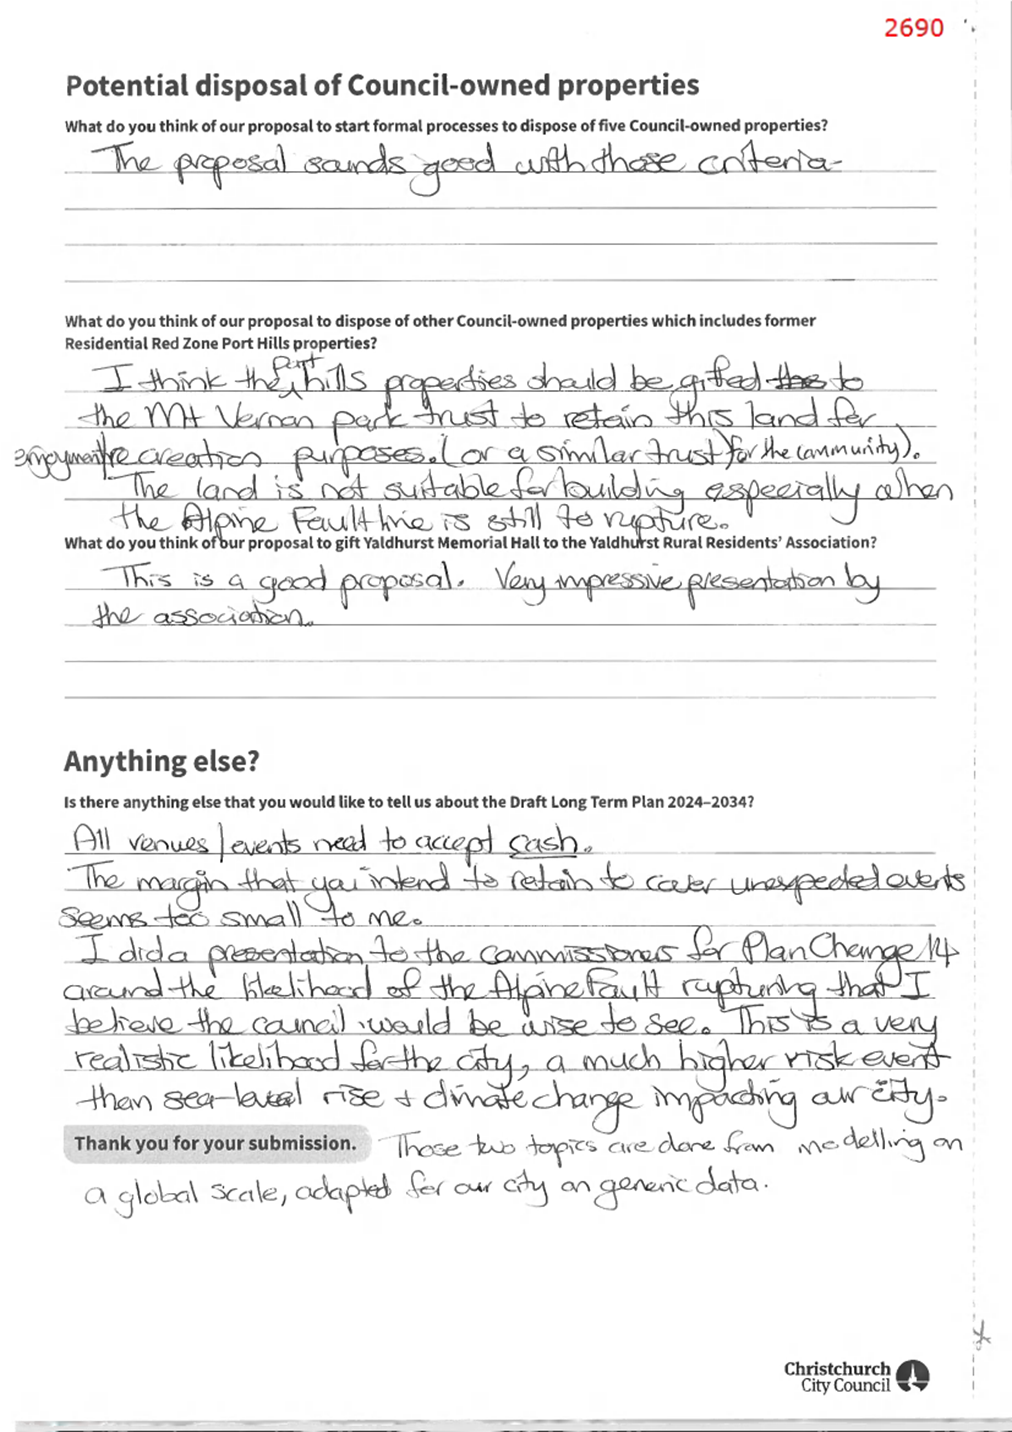 2690
Potential disposal of Council-owned properties
What do you think of our proposal to start formal processes to dispose of five Council-owned properties?
The proposal sounds good with those criteria.
What do you think of our proposal to dispose of other Council-owned properties which includes former
Residential Red Zone Port Hills properties?
I think the Port hills properties should be gifted to
the Mt Vernon park trust to retain this land for
enjoyment/recreation purposes. (or a similar trust) for the community).
The land is not suitable for building especially when
the Alpine Faultline is still to rupture.
What do you think of our proposal to gift Yaldhurst Memorial Hall to the Yaldhurst Rural Residents' Association?
This is a good proposal. Very impressive presentation by
the association.
Anything else?
Is there anything else that you would like to tell us about the Draft Long Term Plan 2024–2034?
All venues/events need to accept cash.
The margin that you intend to retain to cover unexpected events
seems too small to me.
I did a presentation to the commissioners for Plan Change 14
around the likelihood of the Alpine Fault rupturing that I
believe the council would be wise to see. This is a very
realistic likelihood for the city, a much higher risk event
than sea-level rise + climate change impacting our city.
Thank you for your submission. Those two topics are done from modelling on
a global scale, adapted for our city on generic data.
Christchurch
City Council